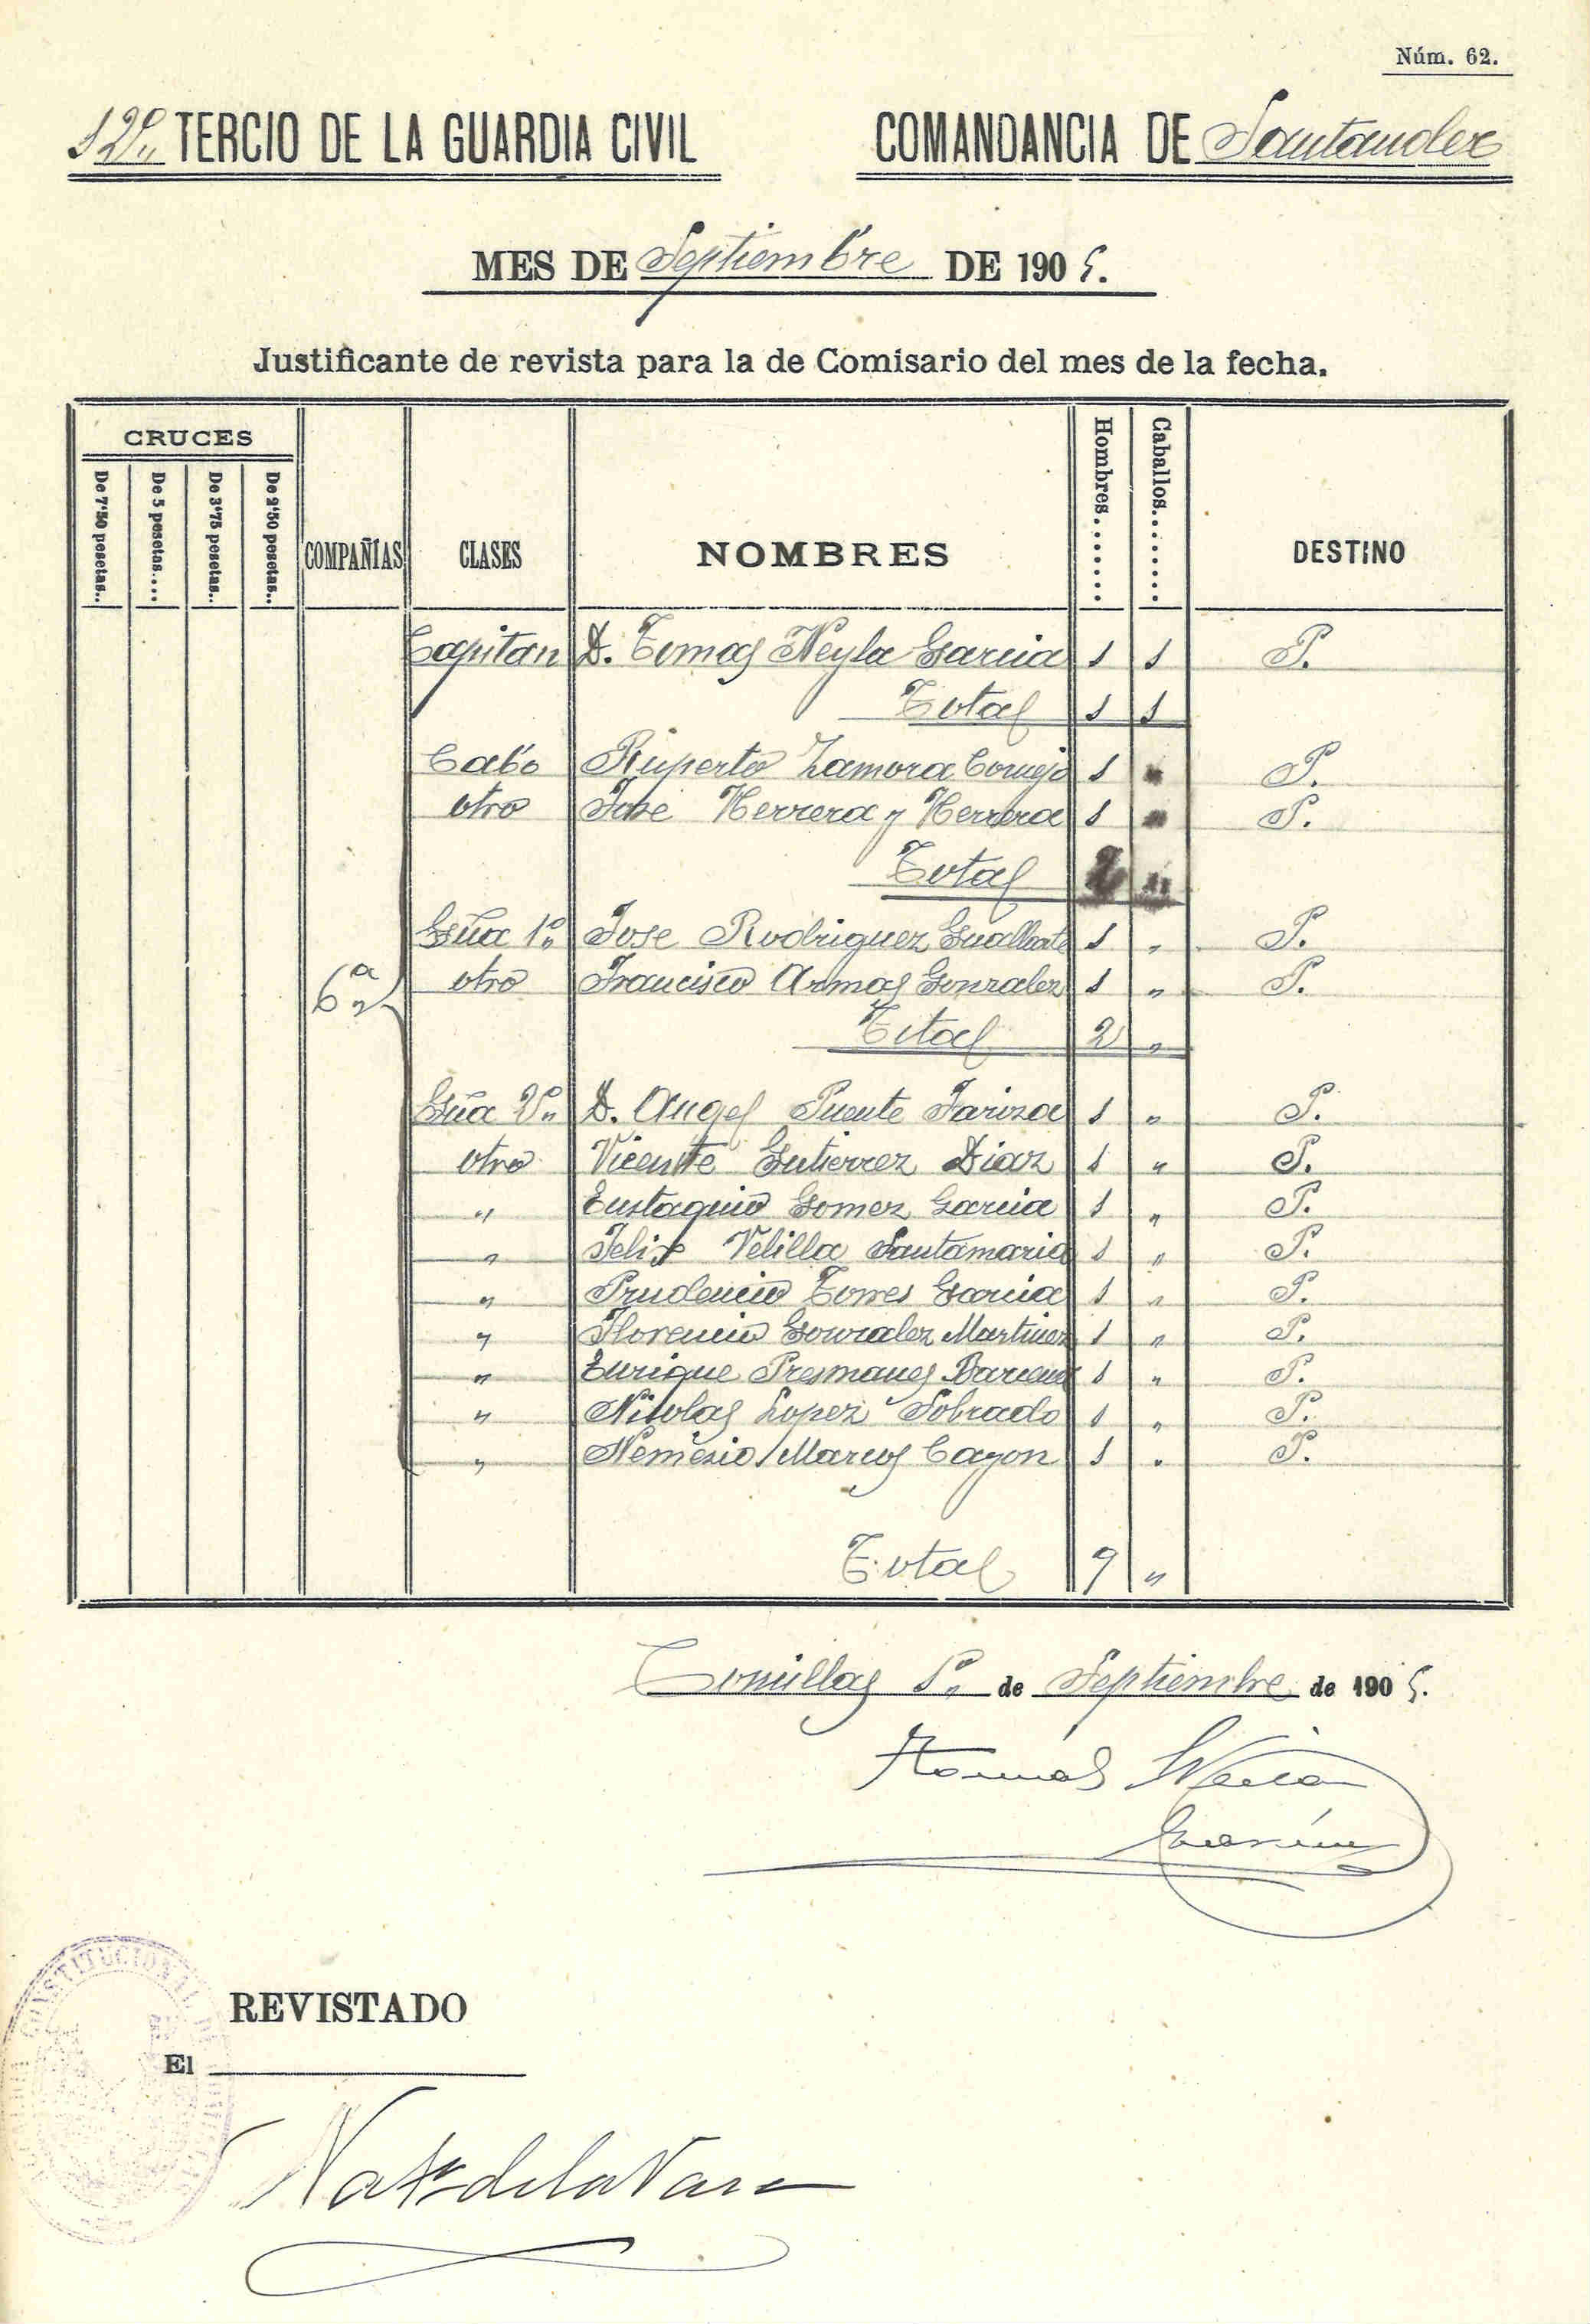 Núm. 62.
12º TERCIO DE LA GUARDIA CIVIL COMANDANCIA DE Santander
MES DE Septiembre DE 1905.
Justificante de revista para la de Comisario del mes de la fecha.
CRUCES
De 7'50 pesetas.. De 5 pesetas.... De 3'75 pesetas.. De 2'50 pesetas.. COMPAÑÍAS CLASES NOMBRES Hombres....... Caballos....... DESTINO
Capitan D. Tomas Neyla Garcia 1 1 P.
Total 1 1
Cabo Ruperto Zamora Cornejo 1 " P.
otro Jose Herrera y Herrera 1 " P.
Total 2 "
Gua 1º Jose Rodriguez Gualbarte 1 " P.
6ª otro Francisco Armas Gonzalez 1 " P.
Total 2 "
Gua 2º D. Angel Puente Fariza 1 " P.
otro Vicente Gutierrez Diaz 1 " P.
" Eustaquio Gomez Garcia 1 " P.
" Felix Velilla Santamaria 1 " P.
" Prudencio Torres Garcia 1 " P.
" Florencio Gonzalez Martinez 1 " P.
" Enrique Presmanes Barcena 1 " P.
" Nicolas Lopez Sobrado 1 " P.
" Nemesio Marcos Cayon 1 " P.
Total 9 "
Comillas 1º de Septiembre de 1905.
Tomás Neila
García
REVISTADO
El
de la Vara
CONSTITUCIONAL DE